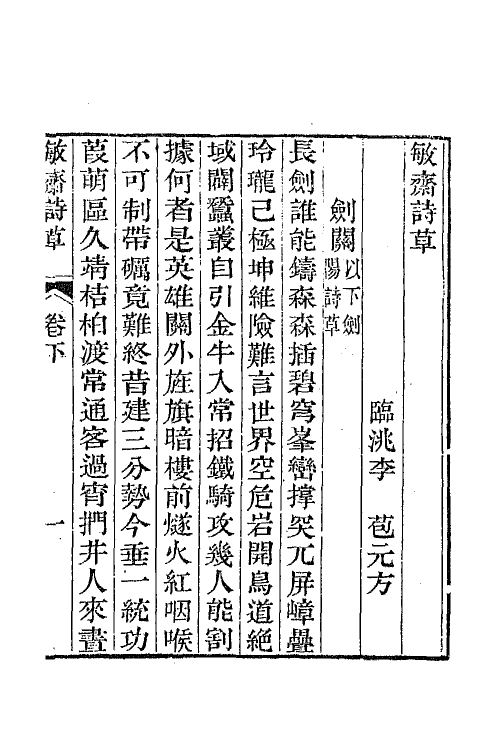 敏齋詩草
臨洮李 苞元方
劍關以下劍陽詩草
長劍誰能鑄森森插碧穹峯巒撐突兀屏嶂疊
玲瓏已極坤維險難言世界空危岩開鳥道絕
域闢蠶叢自引金牛入常招鐵騎攻幾人能割
據何者是英雄關外旌旗暗樓前燧火紅咽喉
不可制帶礪竟難終昔建三分勢今垂一統功
葭萌區久靖桔柏渡常通客過宵捫井人來晝
敏齋詩草 卷下 一